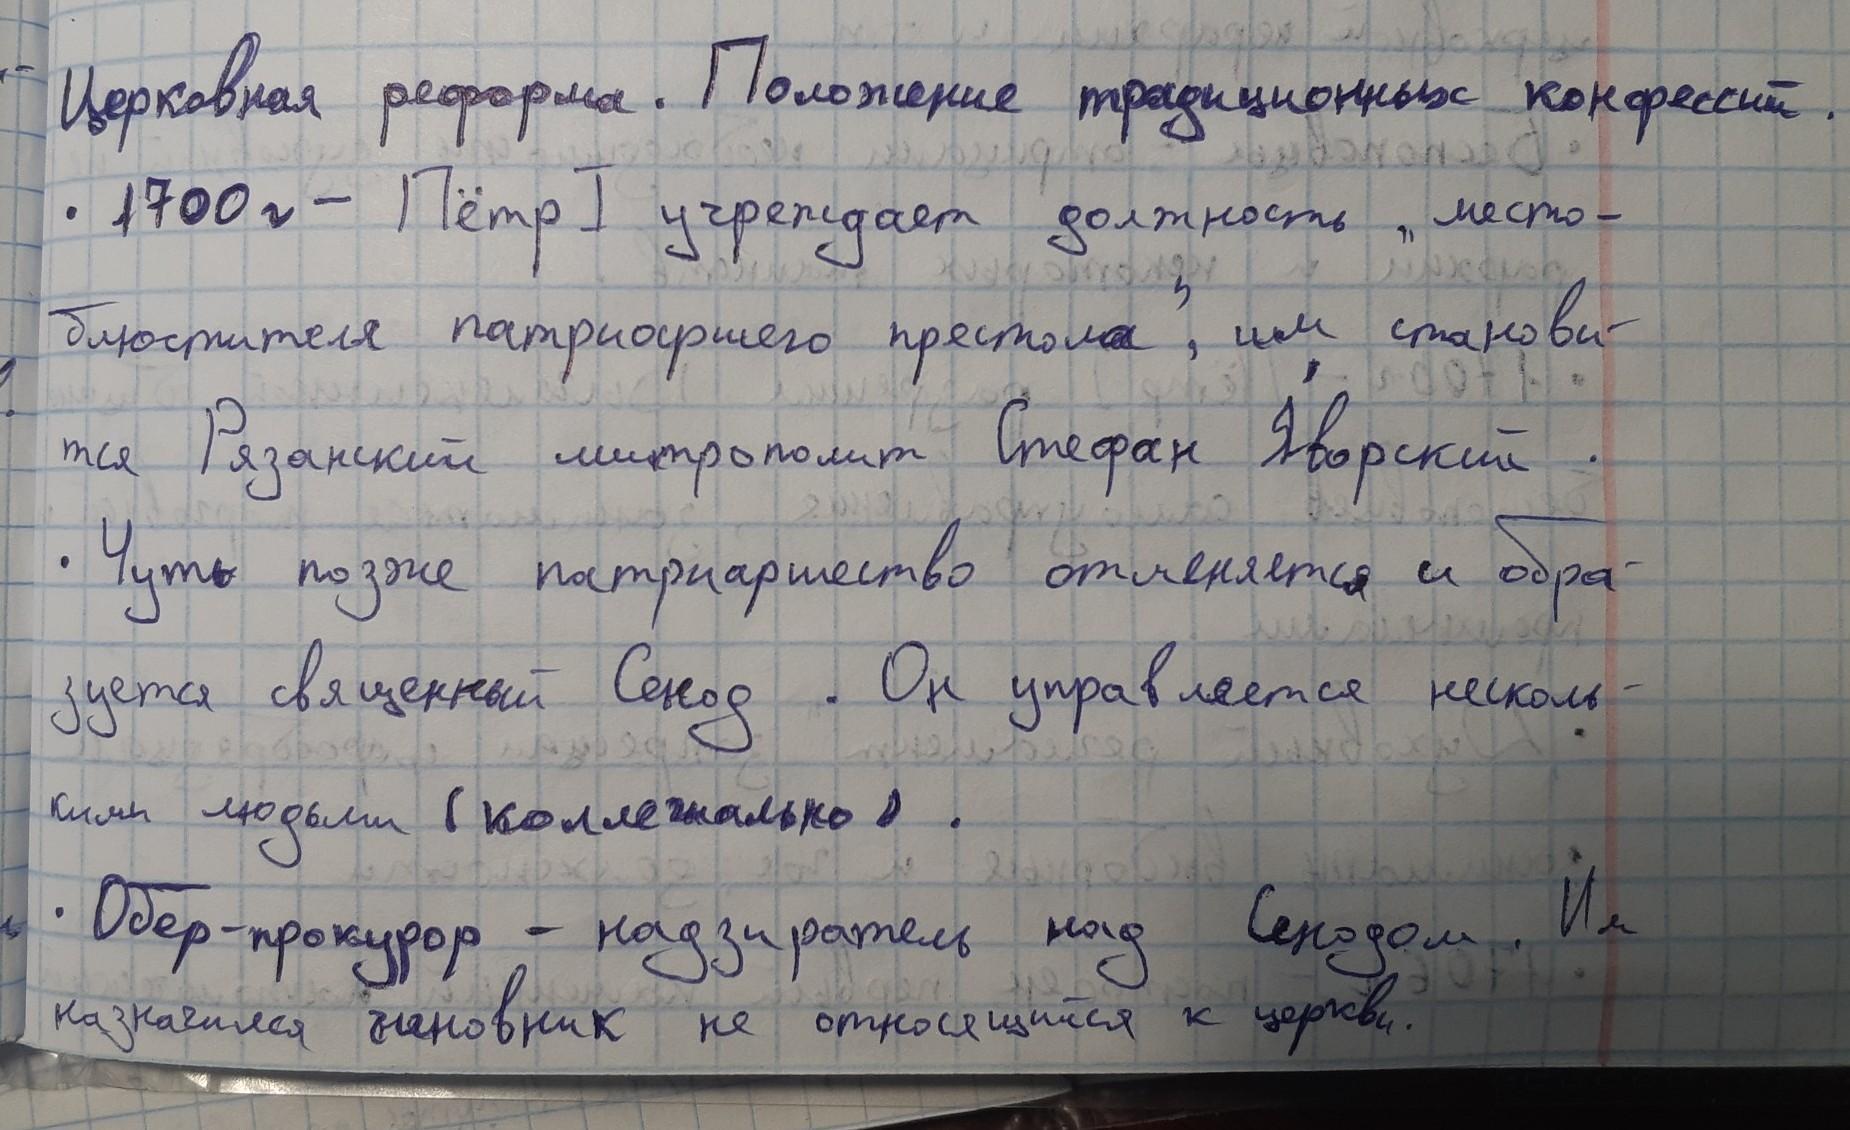 Церковная реформа. Положение традиционных конфессий.
• 1700г – Пётр I учреждает должность „место-
блюстителя патриаршего престола”, им станови-
тся Рязанский митрополит Стефан Яворский.
• Чуть позже патриаршество отменяется и обра-
зуется священный Сенод. Он управляется несколь-
кими людьми (коллегиально).
• Обер-прокурор – надзиратель над Сенодом. Им
назначился чиновник не относящийся к церкви.